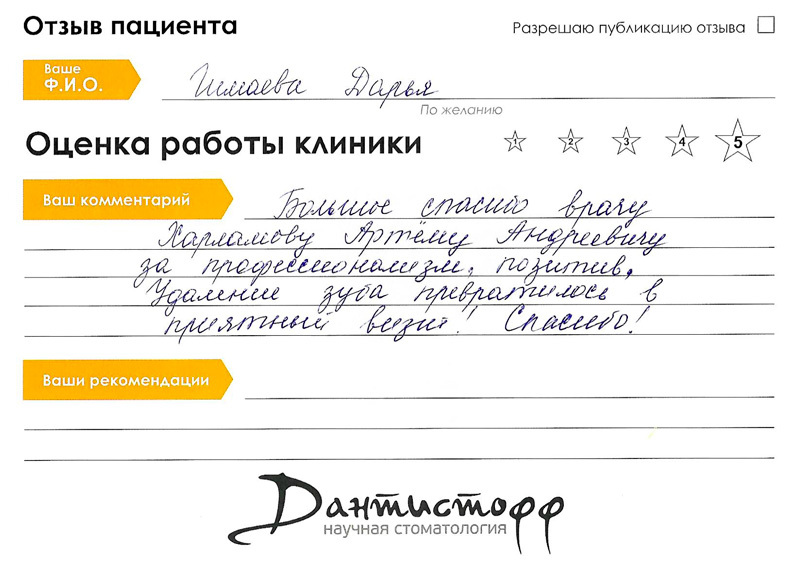 Отзыв пациента
Разрешаю публикацию отзыва
Ваше
Ф.И.О.
Дарья
По желанию
Оценка работы клиники
1 2 3 4 5
Ваш комментарий
Большое спасибо врачу
Харламову Артёму Андреевичу
за профессионализм, позитив,
Удаление зуба превратилось в
приятный визит! Спасибо!
Ваши рекомендации
Дантистофф
научная стоматология